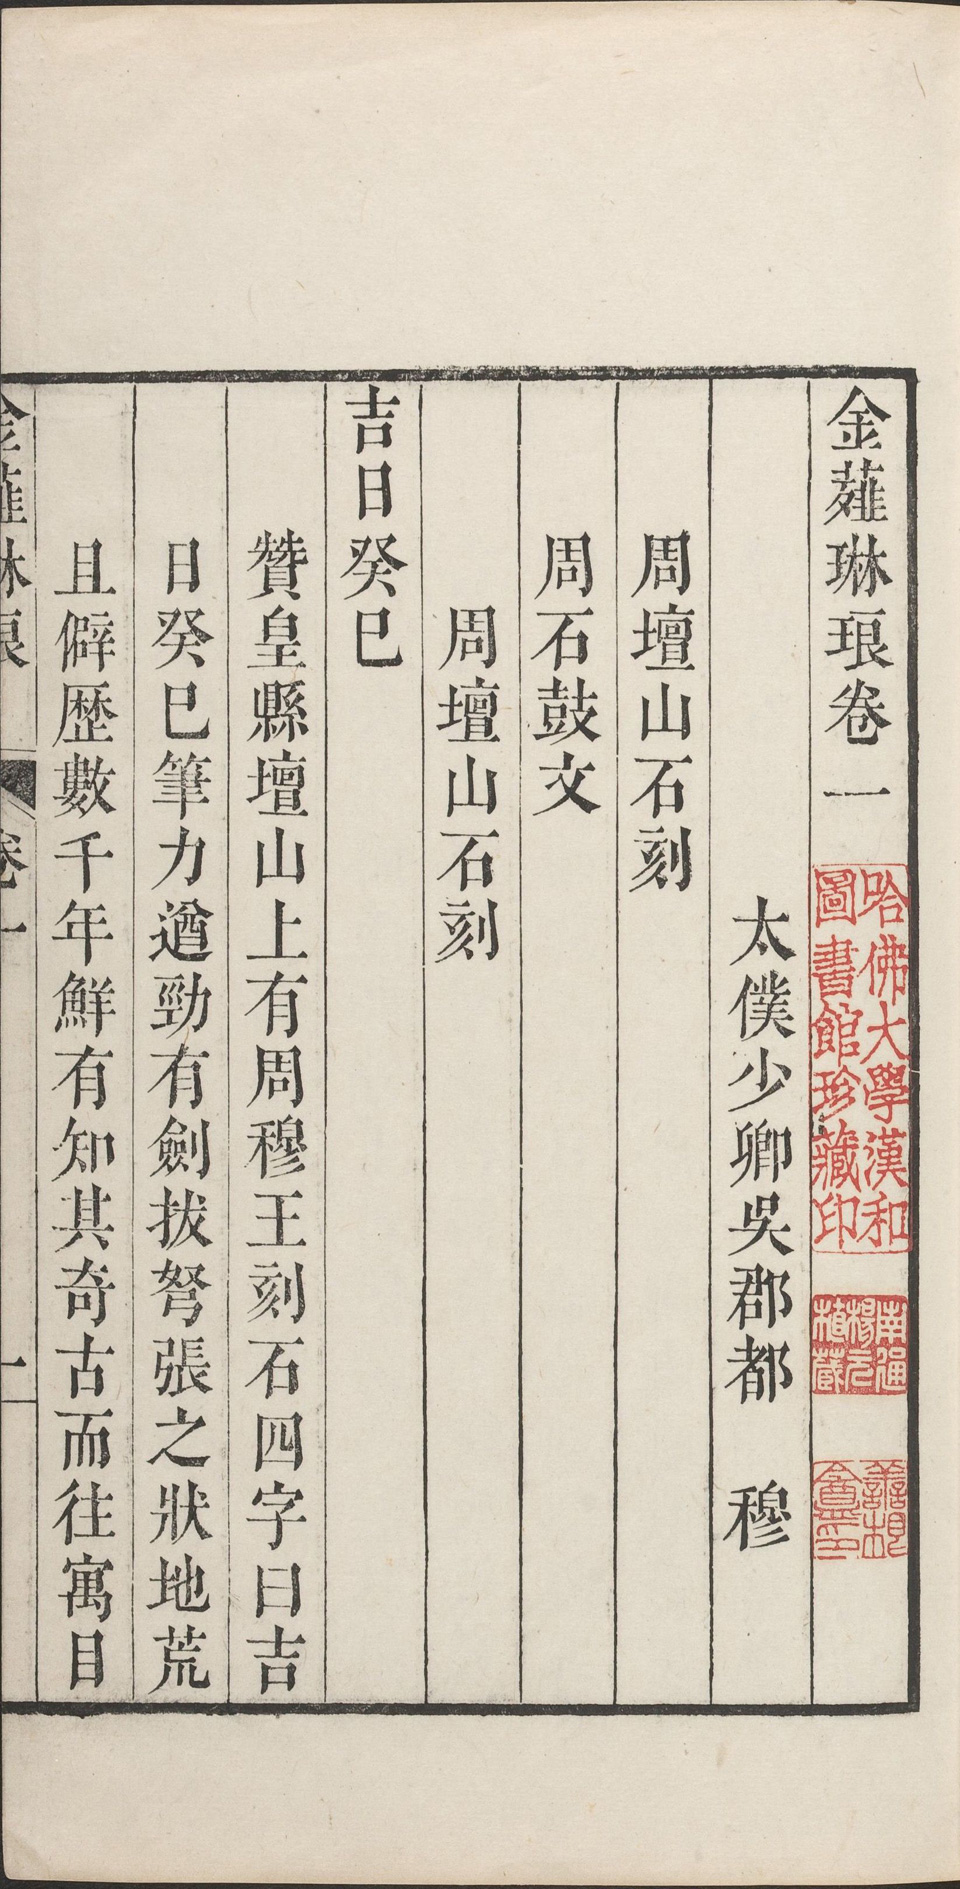 金薤琳琅卷一
哈佛大學漢和
圖書館珍藏印
南通
楊元
植藏
太僕少卿吳郡都　穆
周壇山石刻
周石鼓文
周壇山石刻
吉日癸巳
贊皇縣壇山上有周穆王刻石四字曰吉
日癸巳筆力遒勁有劍拔弩張之狀地荒
且僻歷數千年鮮有知其奇古而往寓目
金薤琳琅
卷一
一